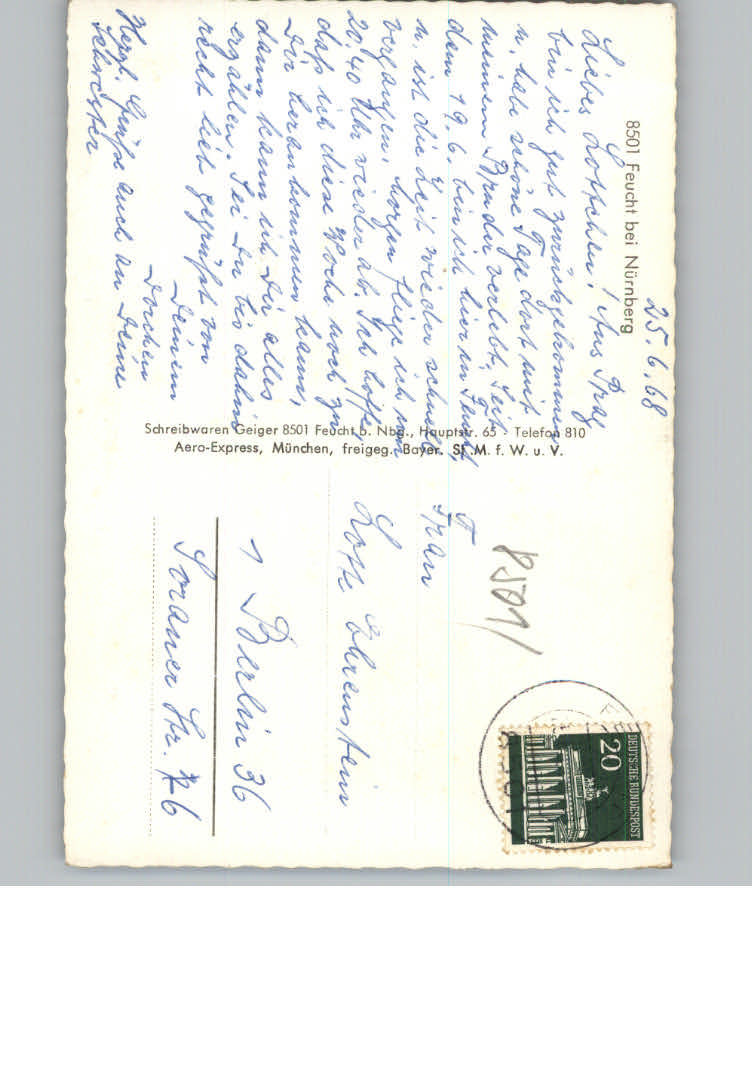 8501 Feucht bei Nürnberg
25.6.68
Liebes Lottchen! Aus Prag
bin ich gut zurückgekommen
u. habe schöne Tage dort mit
meinem Bruder verlebt. Seit
dem 19.6. bin ich hier in Feucht,
u. ist die Zeit wieder schnell
vergangen. Morgen fliege ich um
20.40 Uhr wieder ab. Ich hoffe,
daß ich diese Woche noch zu
Dir herankommen kann,
dann kann ich Dir alles
erzählen. Sei Du bis dahin
recht lieb gegrüßt von
Deinem
Dorchen
Herzl. Grüße auch an Deine
Schwester
Schreibwaren Geiger 8501 Feucht b. Nbg., Hauptstr. 65 · Telefon 810
Aero-Express, München, freigeg. Bayer. St.M. f. W. u. V.
8501/
DEUTSCHE BUNDESPOST
20
Frau
Lotte Ehrenstein
1 Berlin 36
Sorauer Str. 26